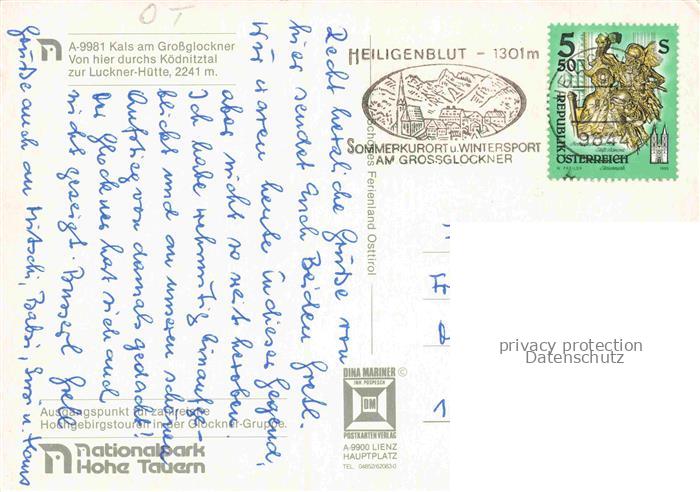 OT
A-9981 Kals am Großglockner
Von hier durchs Ködnitztal
zur Luckner-Hütte, 2241 m.
HEILIGENBLUT - 1301m
SOMMERKURORT u. WINTERSPORT
AM GROSSGLOCKNER
5 50 S
REPUBLIK
ÖSTERREICH
9844
Schönes Ferienland Osttirol
Recht herzliche Grüße von
hier sendet Euch Beiden Gretl.
Wir waren heute in dieser Gegend,
aber nicht so weit heroben.
Ich habe wehmütig hinaufge-
blickt und an unseren schönen
Aufstieg von damals gedacht!
Der Glockner hat sich auch
nicht gezeigt. Busserl Gretl
Grüße auch an Mitschi, Babsi, u. Hans
privacy protection
Datenschutz
Ausgangspunkt für zahlreiche
Hochgebirgstouren in der Glockner-Gruppe.
Nationalpark
Hohe Tauern
DINA MARINER ©
INH. POSPESCH
DM
POSTKARTEN VERLAG
A-9900 LIENZ
HAUPTPLATZ
TEL. 04852/62063-0